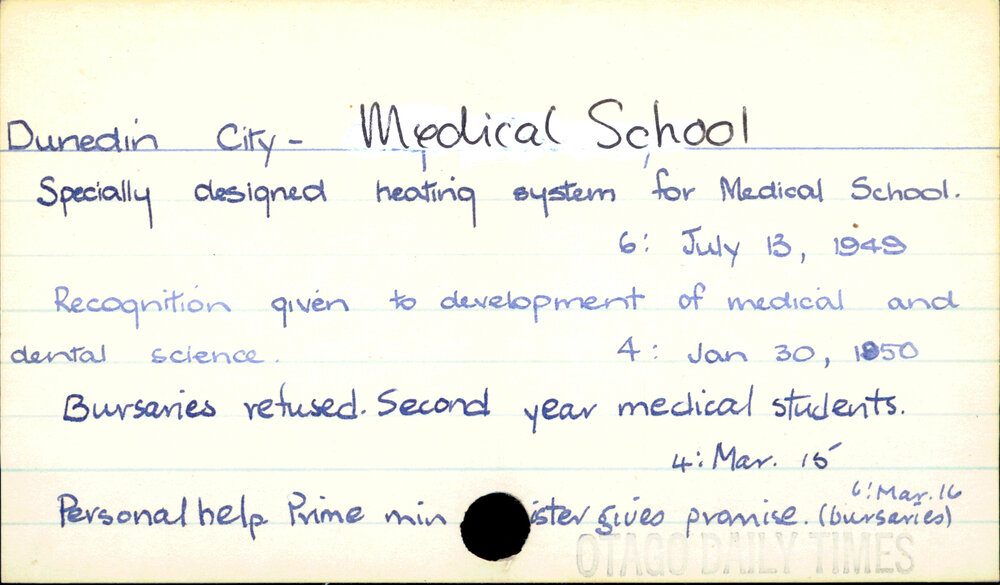 Dunedin City - Medical School
Specially designed heating system for Medical School.
6: July 13, 1949
Recognition given to development of medical and
dental science. 4: Jan 30, 1950
Bursaries refused. Second year medical students.
4: Mar. 15
6: Mar. 16
Personal help Prime min ister gives promise. (bursaries)
OTAGO DAILY TIMES